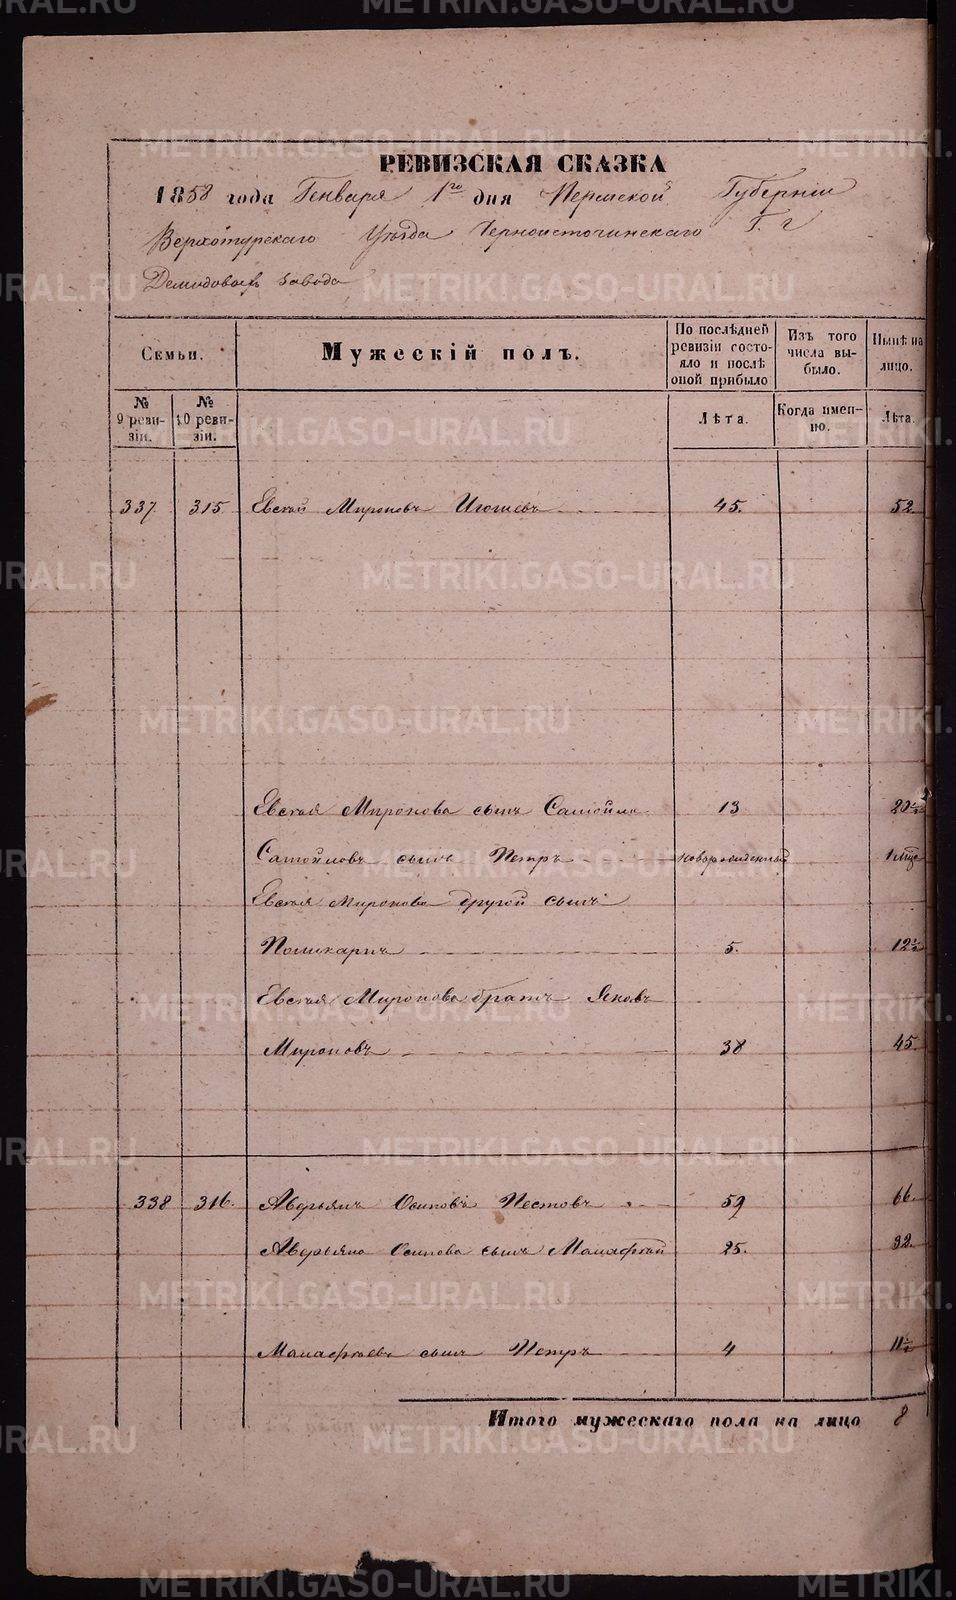 РЕВИЗСКАЯ СКАЗКА
1858 года Генваря 1го дня Пермской Губернiи
Верхотурскаго Уѣзда Черноисточинскаго Г. г
Демидовыхъ завода
Семьи.
Мужескiй полъ.
По послѣдней ревизiи состояло и послѣ оной прибыло
Изъ того числа выбыло.
Нынѣ на лицо.
№ 9 ревизiи.
№ 10 ревизiи.
Лѣта.
Когда именно.
Лѣта.
337. 315. Евсей Мироновъ 45. 52
Евсея Миронова сынъ Самойло 13 20½
Самойловъ сынъ Петръ новорожденный
Евсея Миронова другой сынъ
Поликарпъ 5. 12½
Евсея Миронова братъ Яковъ
Мироновъ 38 45.
338 316. Аверьянъ Осиповъ Пестовъ 59 66.
Аверьяна Осипова сынъ 25. 32.
сынъ Петръ 4 11½
Итого мужескаго пола на лицо 8
METRIKI.GASO-URAL.RU